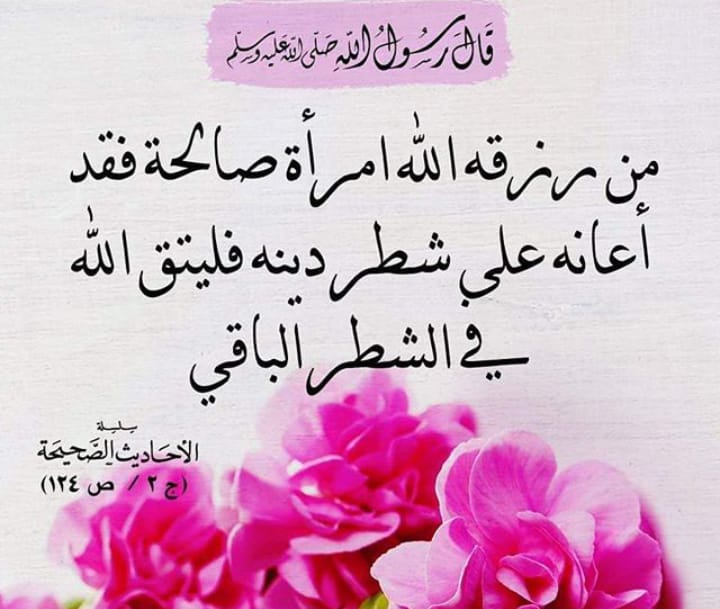 قَالَ رَسُولُ اللّٰهِ صَلَّى اللّٰهُ عَلَيْهِ وَسَلَّم
من رزقه اللّٰه امرأة صالحة فقد
أعانه على شطر دينه فليتق اللّٰه
في الشطر الباقي
سلسلة
الأحَاديث الصَّحيحَة
(ج ٢ / ص ١٢٤)